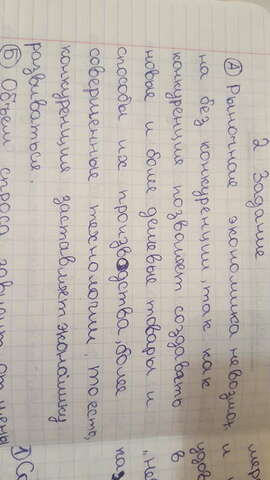 2 Задание
А Рыночная экономика невозмож
на без конкуренции, так как
конкуренция позваляет создавать
новые и более дешевые товары и
способы их производства, более
совершенные технологии, то есть,
конкуренция заставляет экономику
развиваться.
Б Объем спроса зависит от цены
мер
и
удов
в
"Не
ка
1) Со